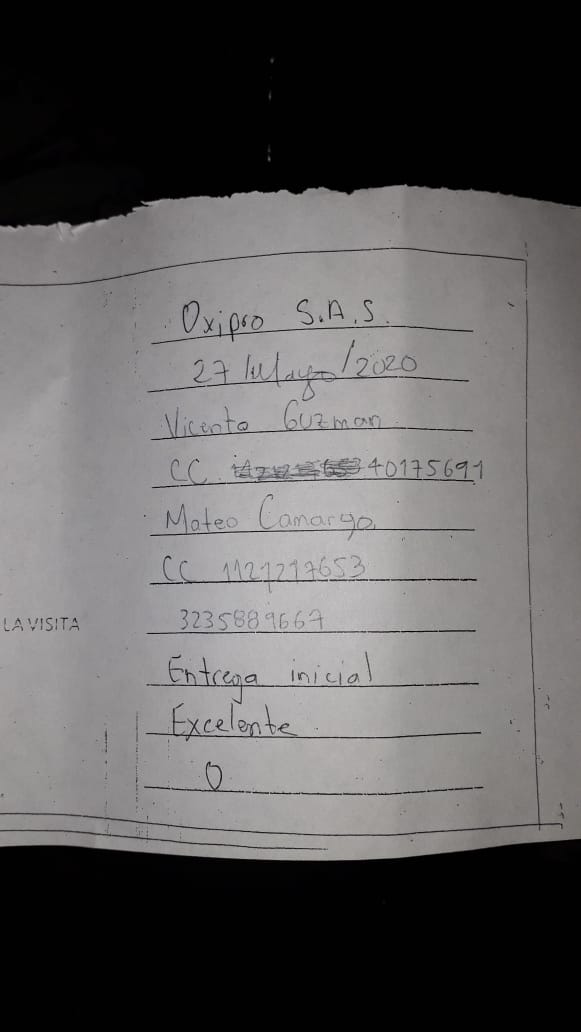 Oxipro S.A.S.
27/Mayo/2020
Vicente Guzman
CC. 40175691
Mateo Camargo.
CC 1121217653
LA VISITA
3235889667
Entrega inicial
Excelente
0